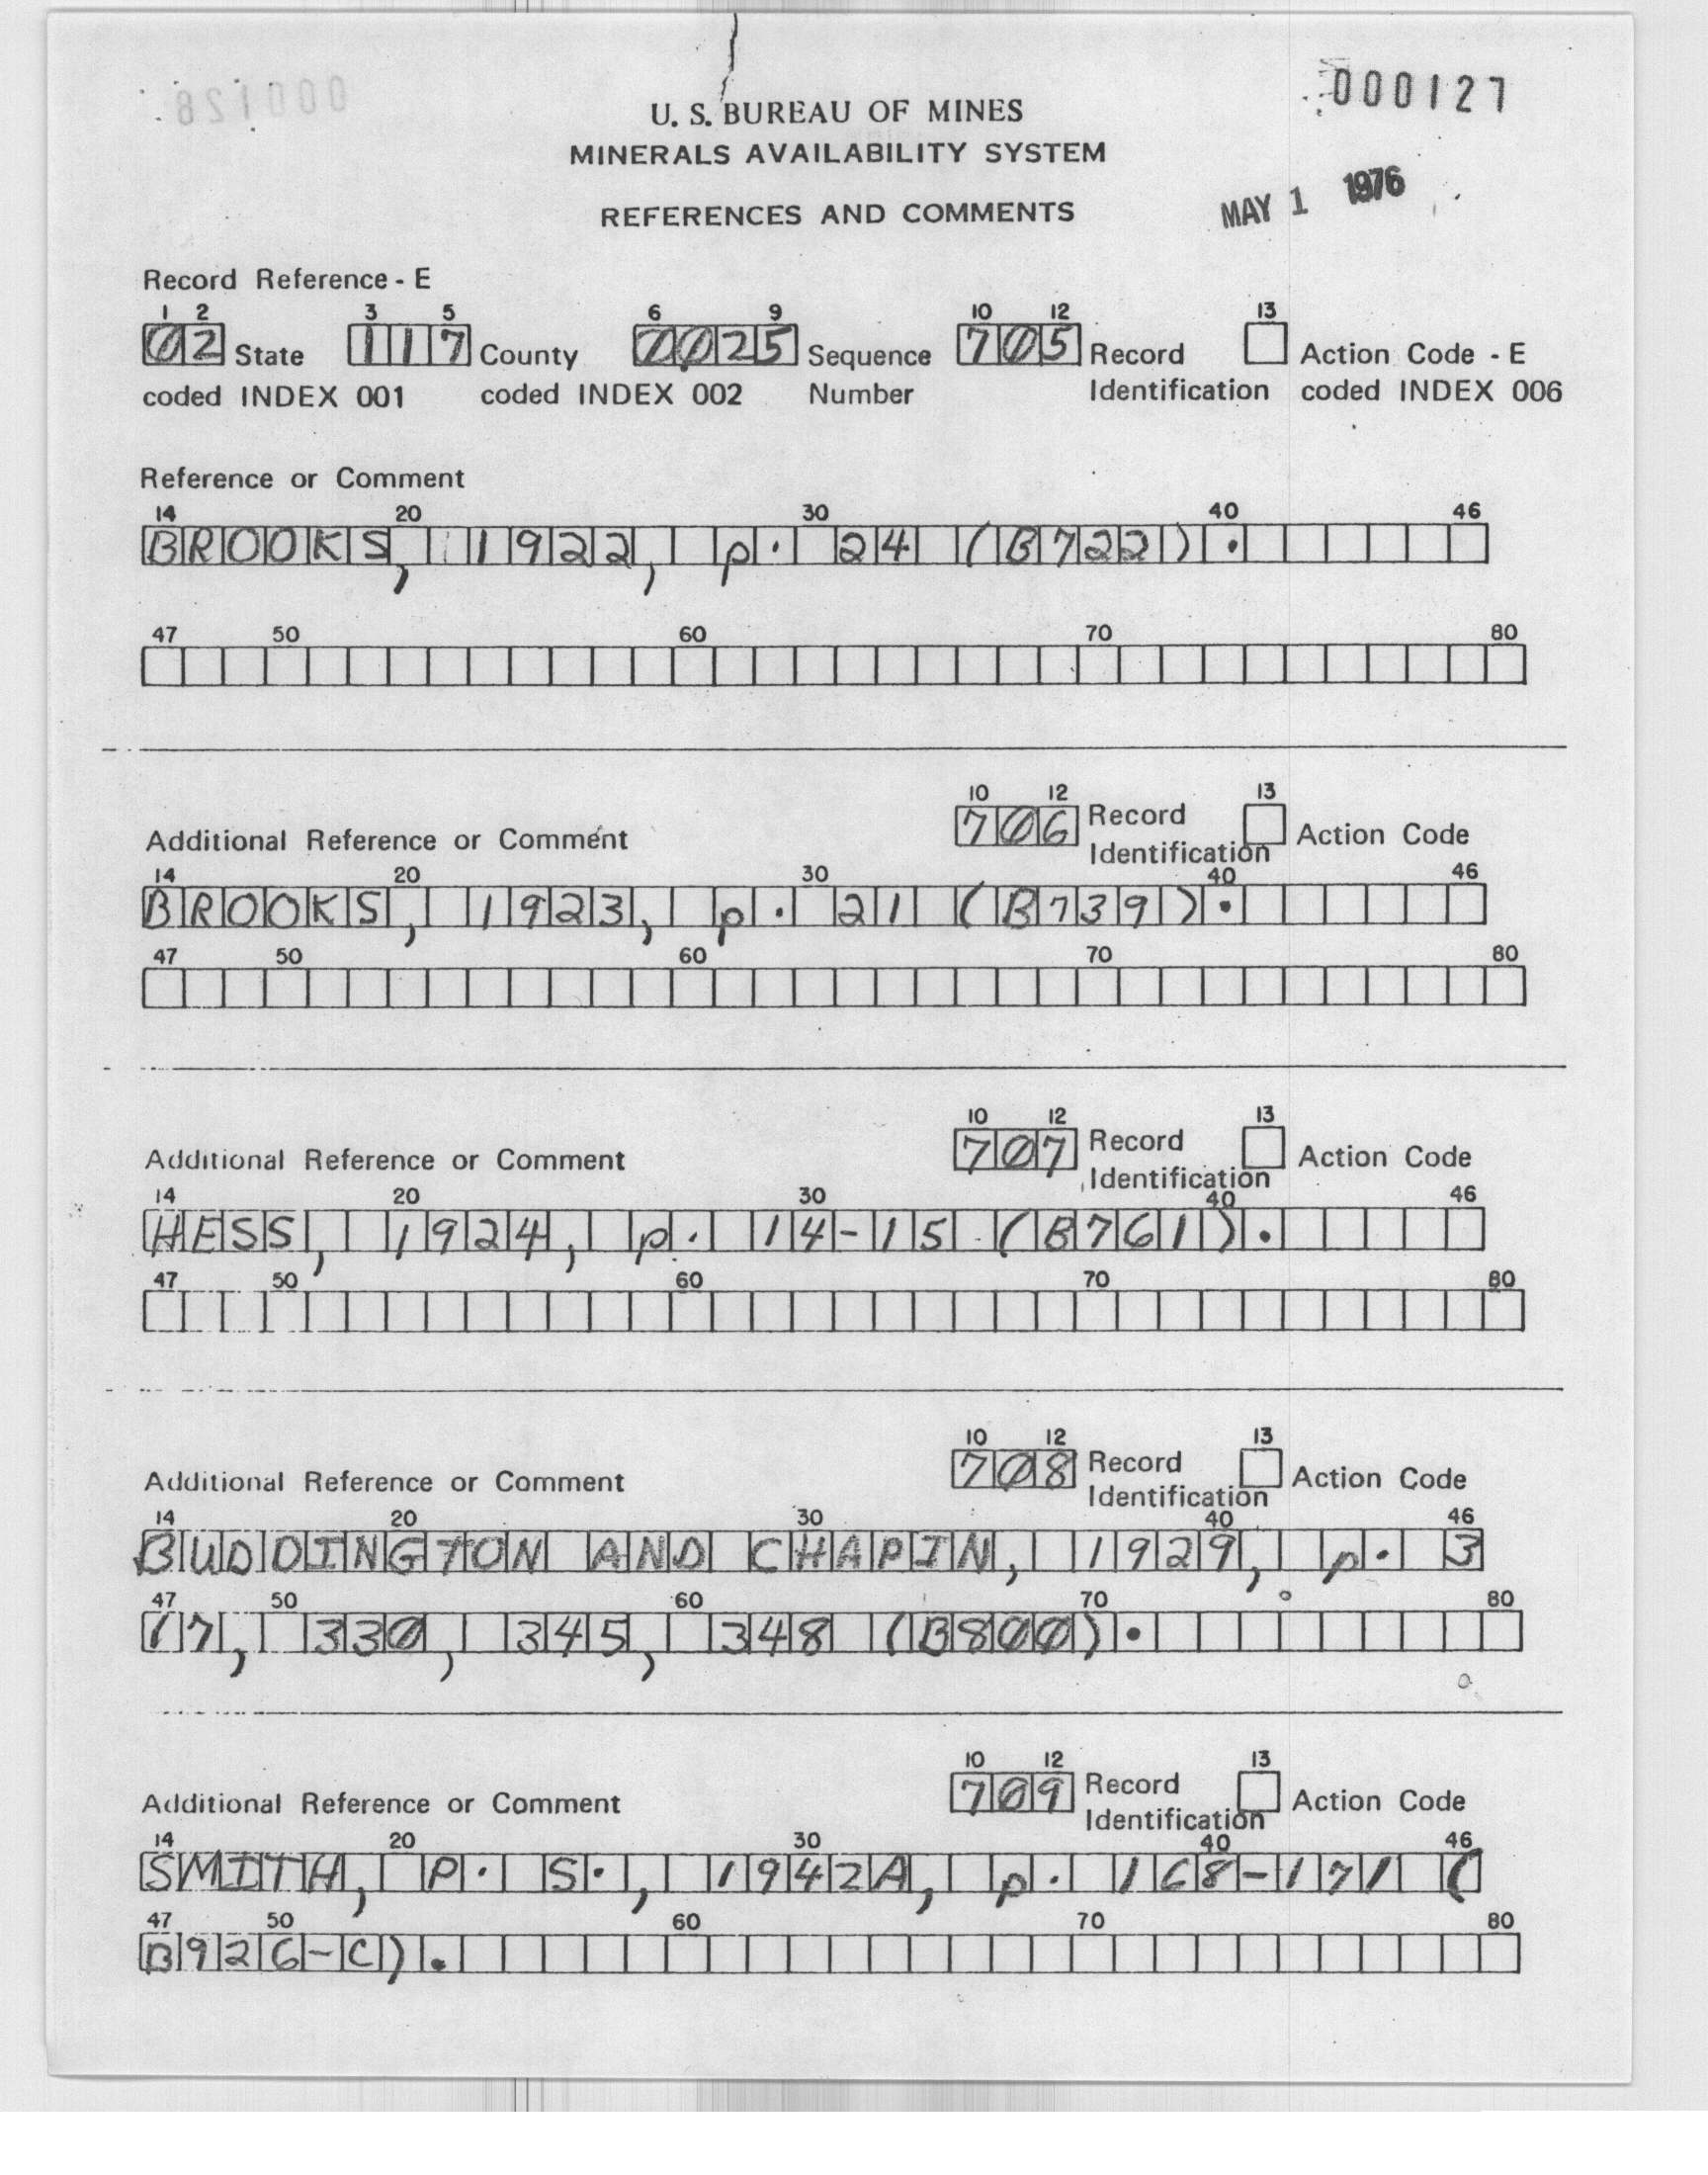 000128
000127
U. S. BUREAU OF MINES
MINERALS AVAILABILITY SYSTEM
MAY 1 1976
REFERENCES AND COMMENTS
Record Reference - E
1 2 3 5 6 9 10 12 13
02 State 117 County 0025 Sequence 705 Record Action Code - E
coded INDEX 001 coded INDEX 002 Number Identification coded INDEX 006
Reference or Comment
14 20 30 40 46
BROOKS, 1922, p. 24 (B722).
47 50 60 70 80
10 12 13
Additional Reference or Comment 706 Record Identification Action Code
14 20 30 40 46
BROOKS, 1923, p. 21 (B739).
47 50 60 70 80
10 12 13
Additional Reference or Comment 707 Record Identification Action Code
14 20 30 40 46
HESS, 1924, p. 14-15 (B761).
47 50 60 70 80
10 12 13
Additional Reference or Comment 708 Record Identification Action Code
14 20 30 40 46
BUDDINGTON AND CHAPIN, 1929, p. 3
47 50 60 70 80
17, 330, 345, 348 (B800).
10 12 13
Additional Reference or Comment 709 Record Identification Action Code
14 20 30 40 46
SMITH, P. S., 1942A, p. 168-171 (
47 50 60 70 80
B926-C).